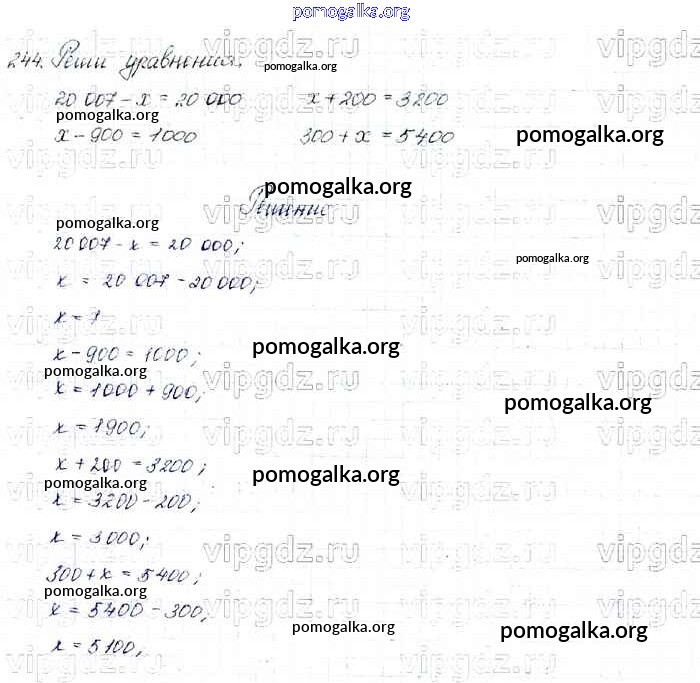 pomogalka.org
244. Реши уравнения.
pomogalka.org
20 007 - x = 20 000 x + 200 = 3200
x - 900 = 1000 300 + x = 5400
pomogalka.org
pomogalka.org
Решение
pomogalka.org
20 007 - x = 20 000;
pomogalka.org
x = 20 007 - 20 000;
x = 7
pomogalka.org
x - 900 = 1000;
pomogalka.org
x = 1000 + 900;
pomogalka.org
x = 1900;
x + 200 = 3200;
pomogalka.org
pomogalka.org
x = 3200 - 200;
x = 3000;
300 + x = 5400;
pomogalka.org
x = 5400 - 300;
pomogalka.org
pomogalka.org
x = 5100;
vipgdz.ru